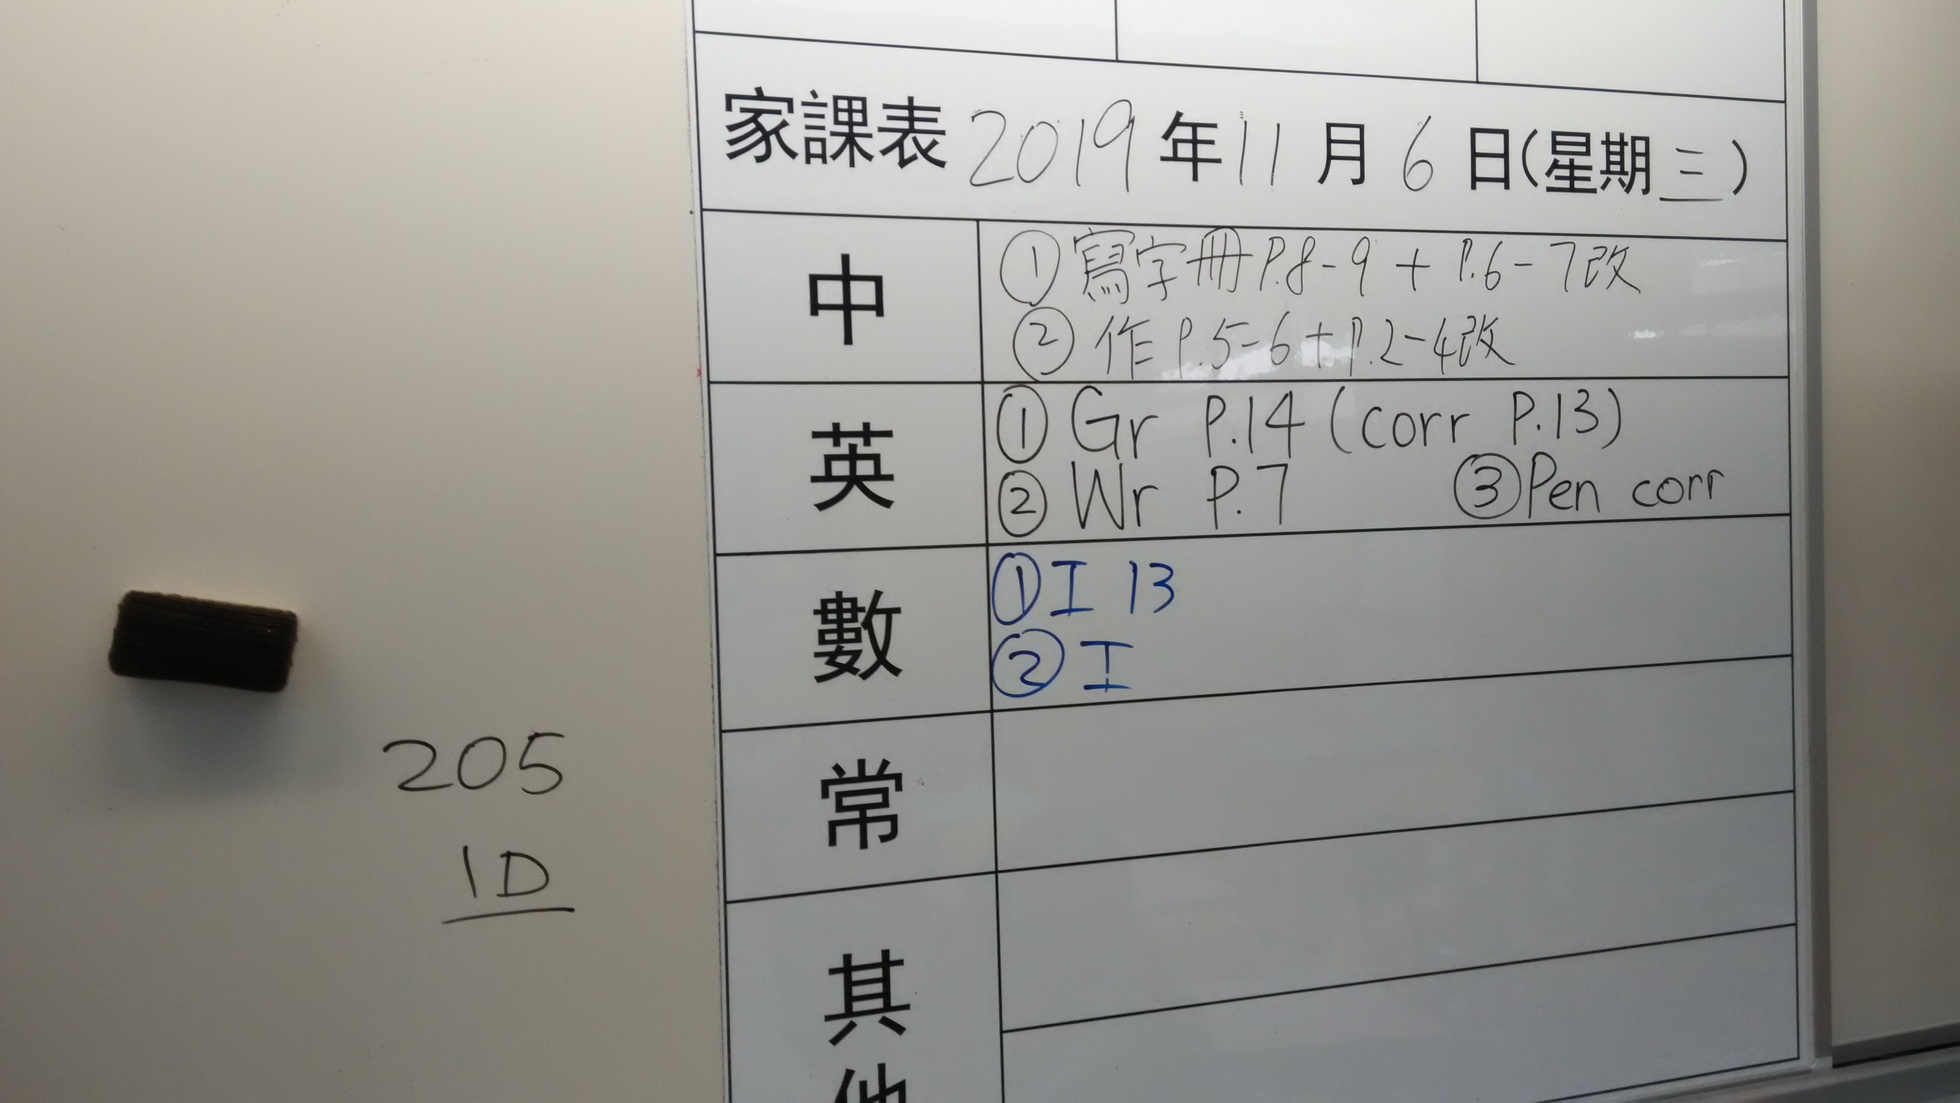 家課表 2019年11月6日(星期三)
中
① 寫字冊P.8-9 + P.6-7改
② 作P.5-6+P.2-4改
英
① Gr P.14 (corr P.13)
② Wr P.7 ③Pen corr
數
①I 13
②I
常
其
他
205
1D